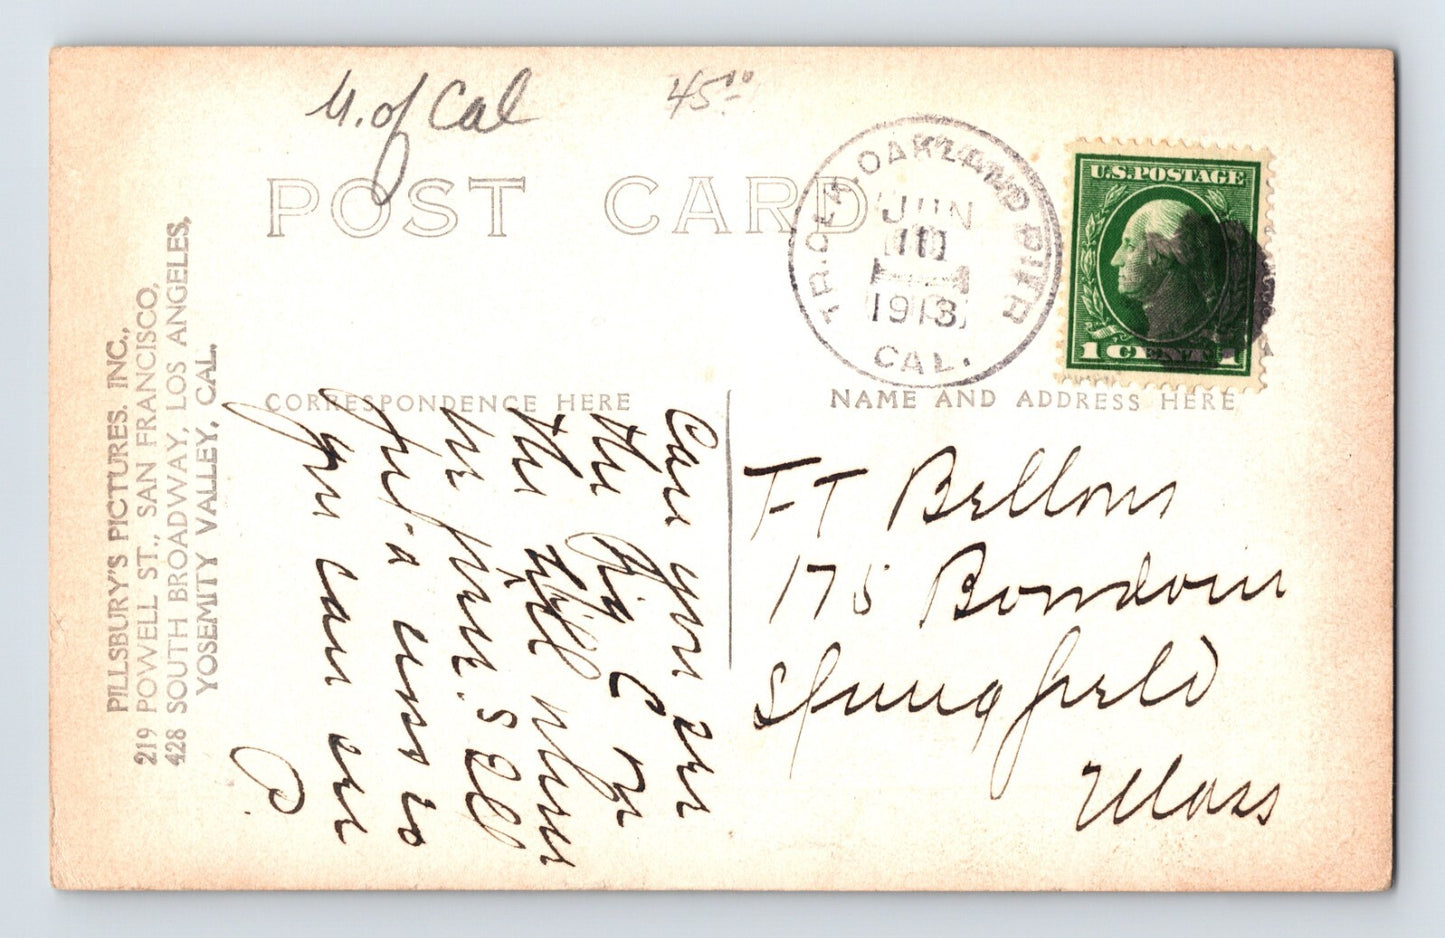 U. of Cal
45.00
POST CARD
TR. OFF. OAKLAND PIER
JUN
10
1913
CAL.
U.S. POSTAGE
1 CENT 1
PILLSBURY'S PICTURES, INC.,
219 POWELL ST., SAN FRANCISCO,
428 SOUTH BROADWAY, LOS ANGELES,
YOSEMITY VALLEY, CAL.
CORRESPONDENCE HERE
NAME AND ADDRESS HERE
Can you see
the big C on
the hill where
we were. S Ell
you can see
C
FT Bellows
175 Bowdoin
Springfield
Mass